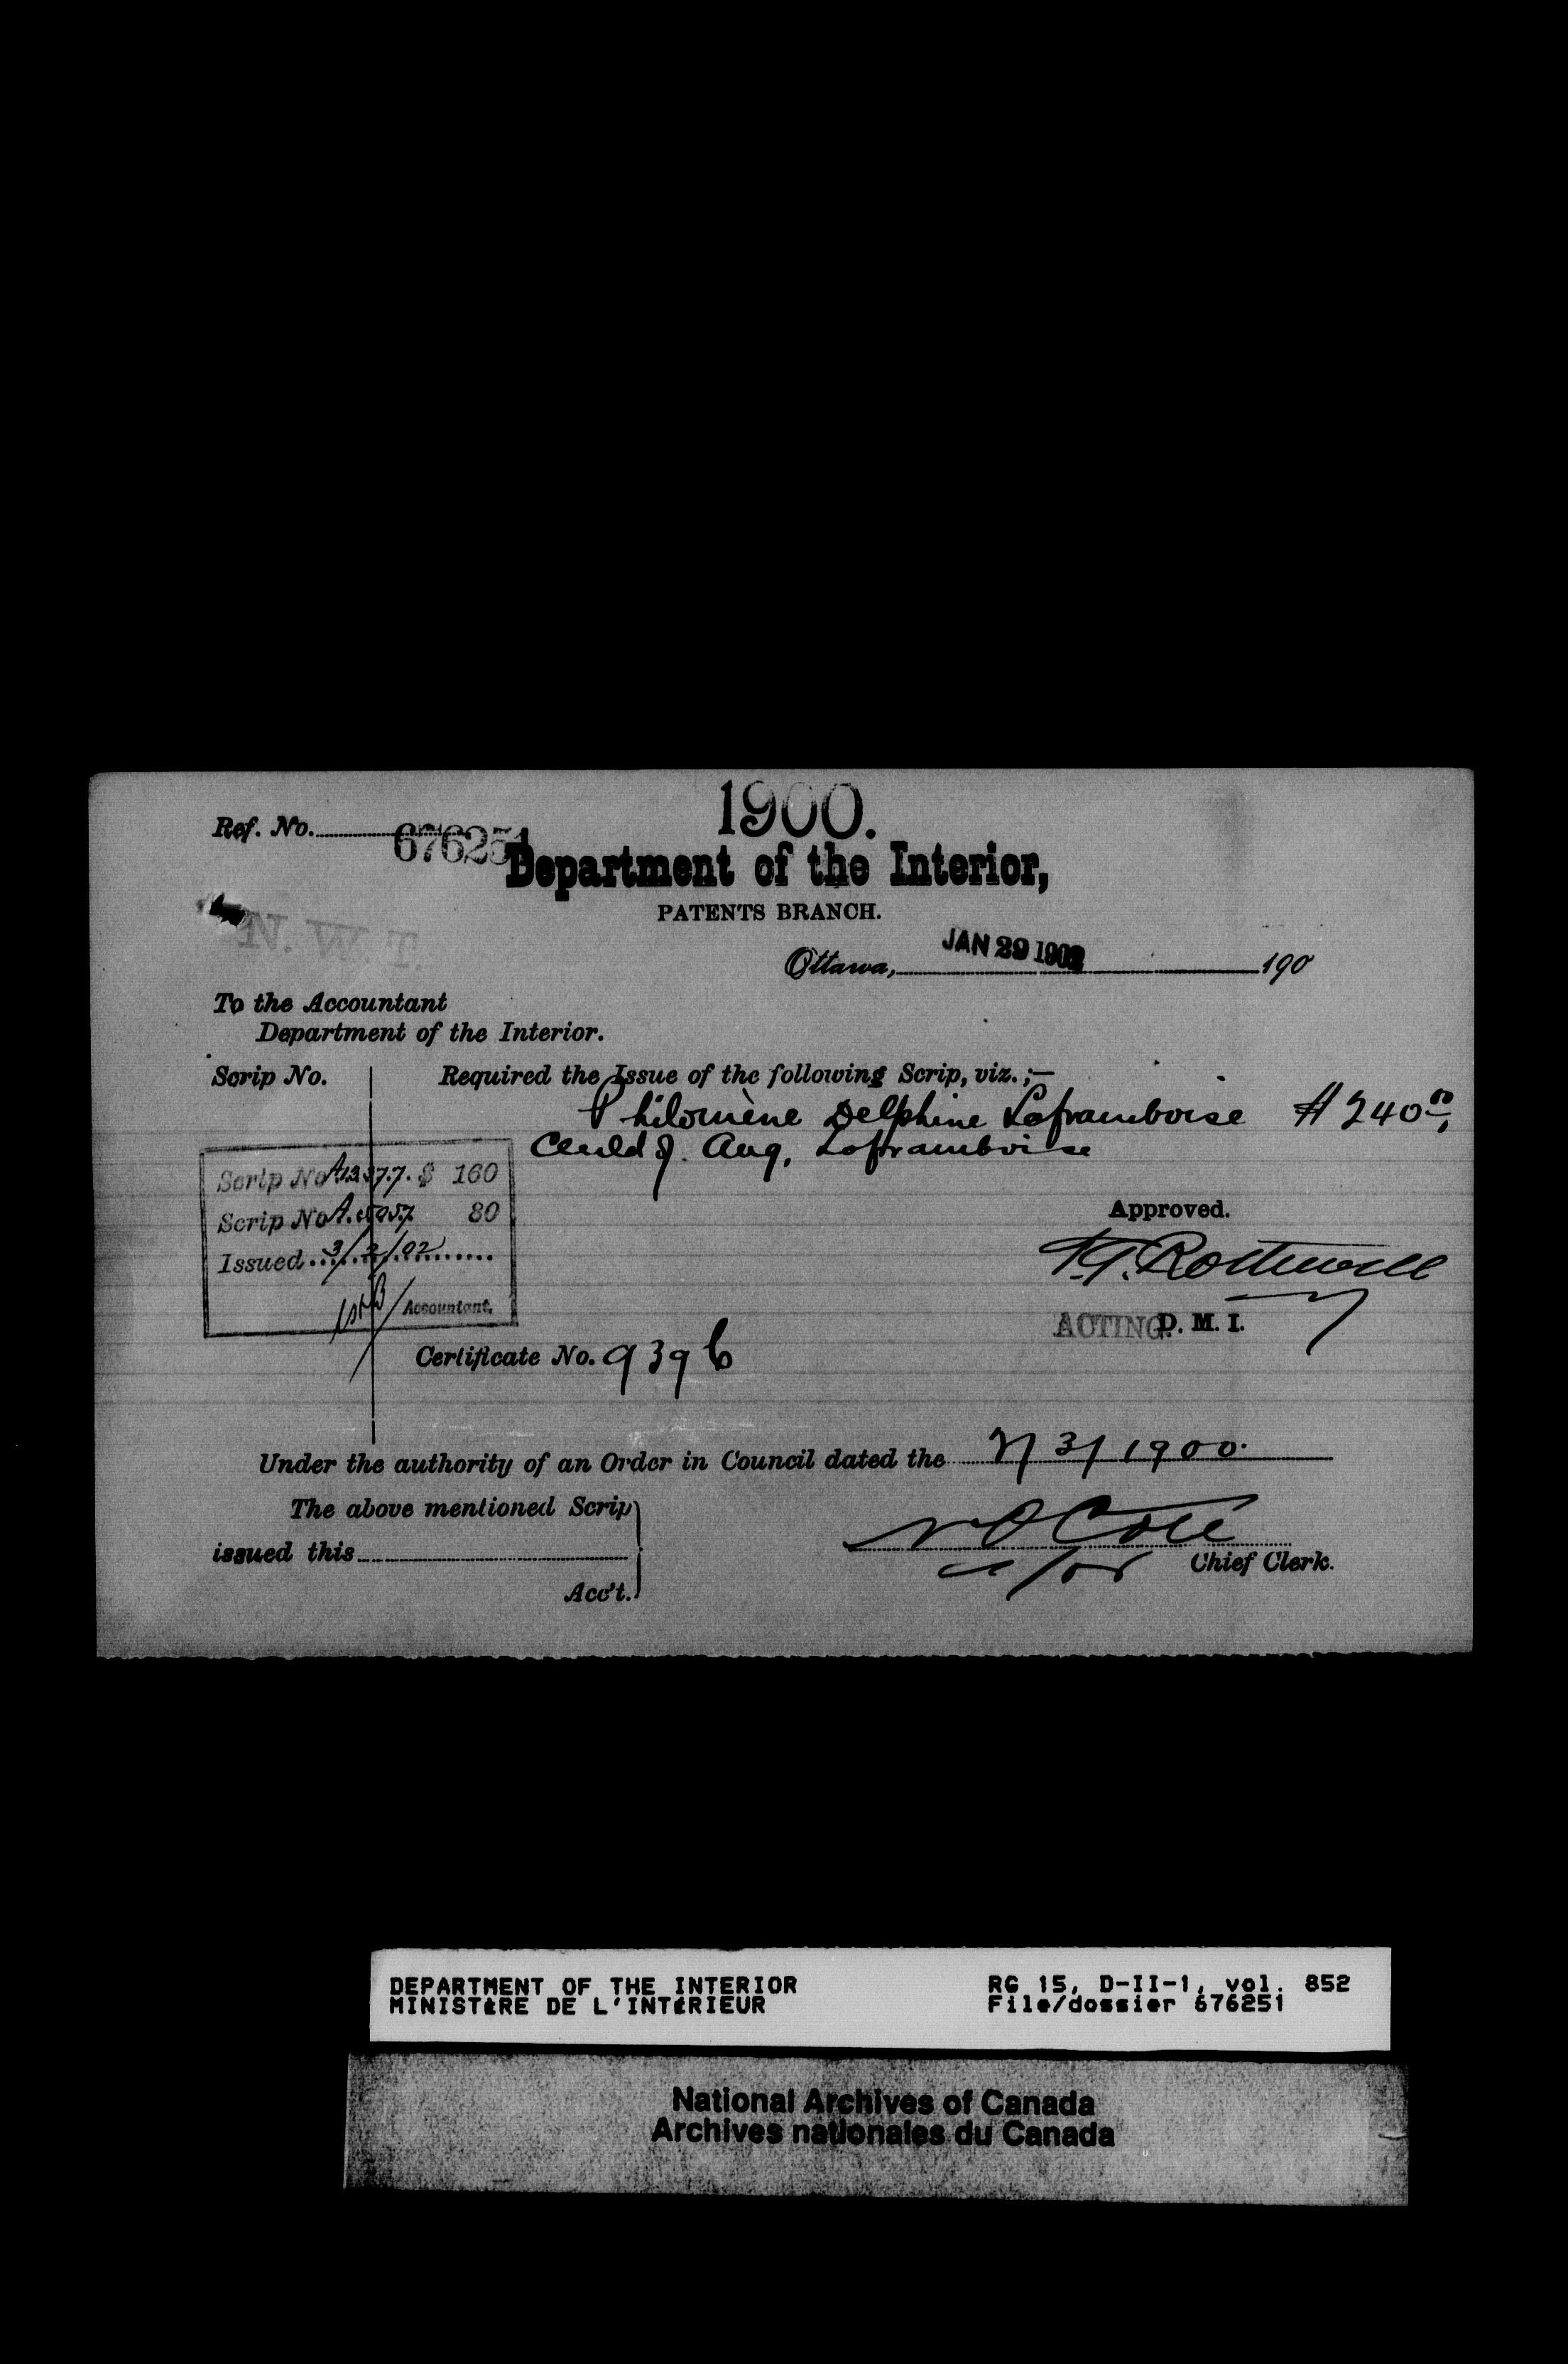 1900.
Ref. No. 676251
Department of the Interior,
PATENTS BRANCH.
N. W. T.
Ottawa, JAN 29 1902 190
To the Accountant
Department of the Interior.
Scrip No. Required the Issue of the following Scrip, viz.;—
Philomène Delphine Laframboise $240.00
Child of Aug. Laframboise
Scrip No. $ 160
Scrip No. 80
Issued 3/2/02
Accountant.
Approved.
Rothwell
ACTING D. M. I.
Certificate No. 939 b
Under the authority of an Order in Council dated the 3/1900.
The above mentioned Scrip
issued this
Acc't.
N O Coté
Chief Clerk.
DEPARTMENT OF THE INTERIOR RG 15, D-II-1, vol. 852
MINISTÈRE DE L'INTÉRIEUR File/dossier 676251
National Archives of Canada
Archives nationales du Canada